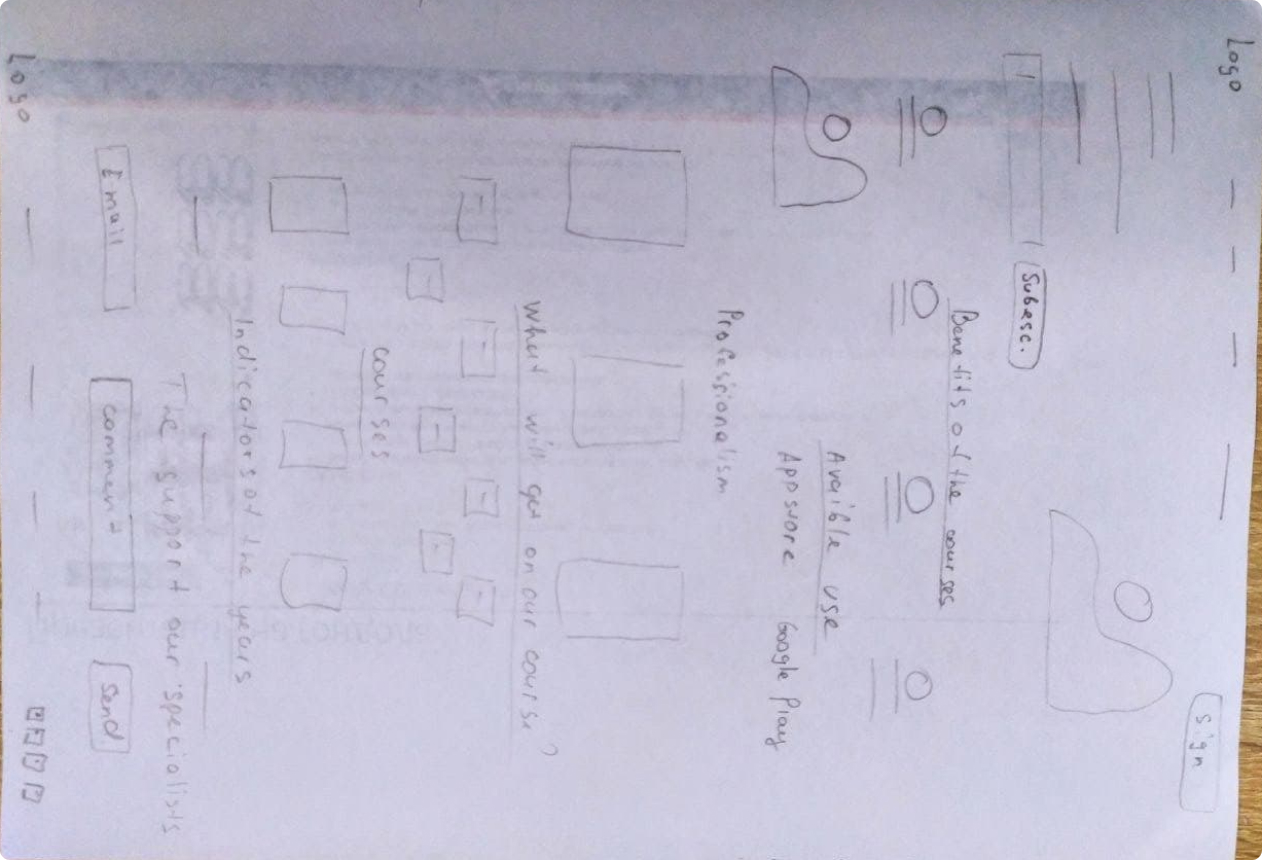 Logo
Sign
Subesc.
Benefits of the courses
Avaible use
Appstore Google Play
Professionalism
What will get on our course?
courses
Indicators of the years
The support our specialists
Email comment Send
Logo